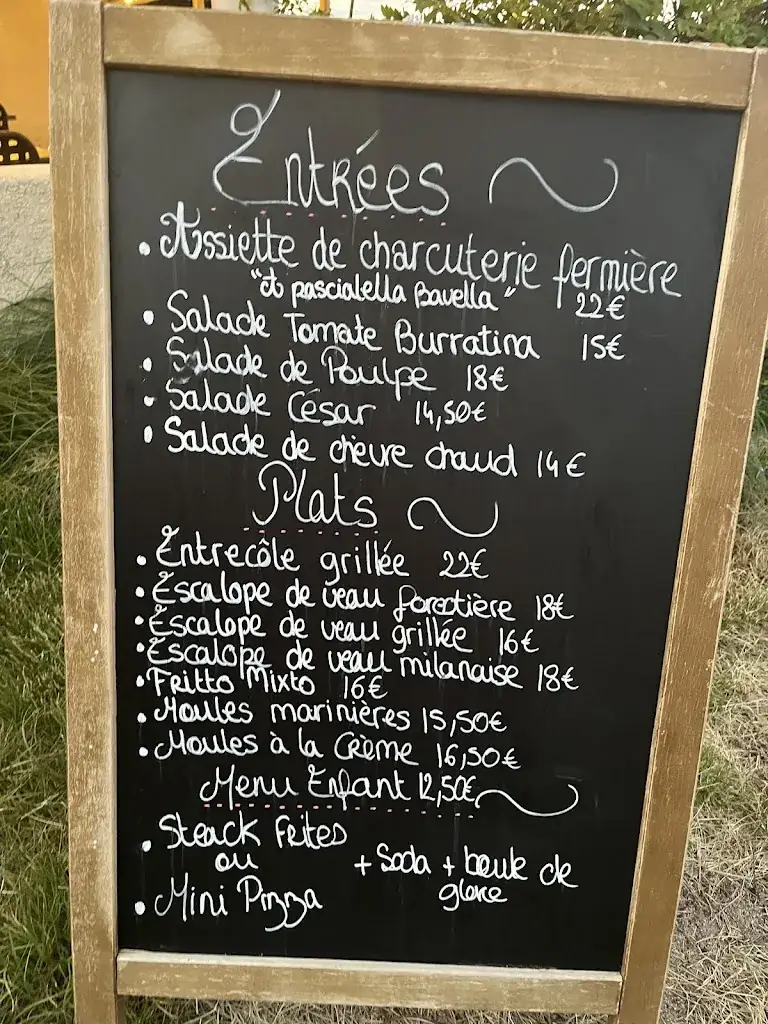 Entrées
• Assiette de charcuterie fermière
"et pascialella Bavella" 22€
• Salade Tomate Burratina 15€
• Salade de Poulpe 18€
• Salade César 14,50€
• Salade de chèvre chaud 14€
Plats
• Entrecôte grillée 22€
• Escalope de veau forestière 18€
• Escalope de veau grillée 16€
• Escalope de veau milanaise 18€
• Fritto Mixto 16€
• Moules marinières 15,50€
• Moules à la Crème 16,50€
Menu Enfant 12,50€
• Steack Frites
ou + Soda + boule de
glace
• Mini Pizza